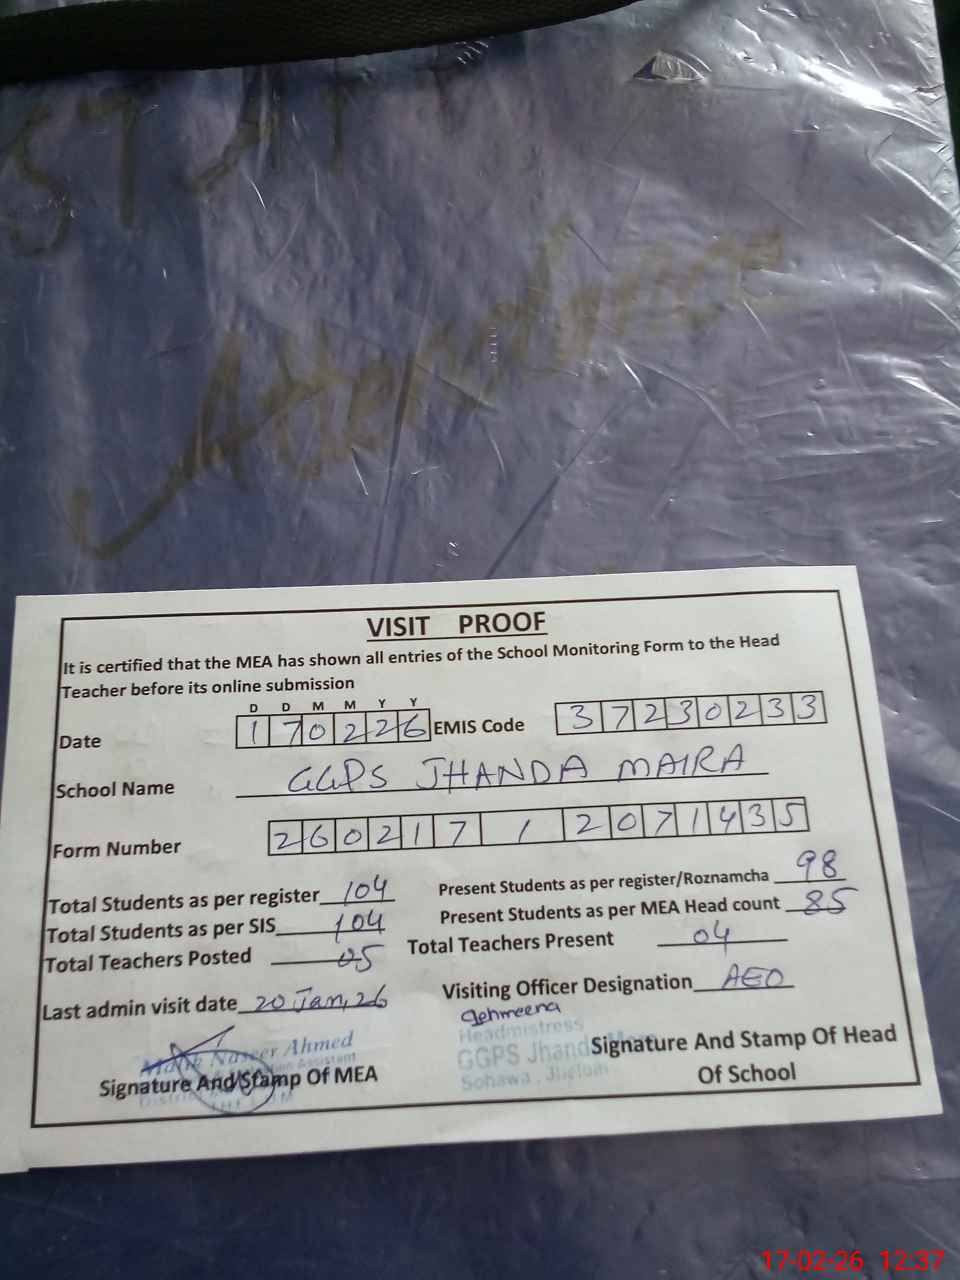 STAFF
Attendance
VISIT PROOF
It is certified that the MEA has shown all entries of the School Monitoring Form to the Head
Teacher before its online submission
D D M M Y Y
Date 170226 EMIS Code 37230233
School Name GGPS JHANDA MAIRA
Form Number 260217 1 2071435
Total Students as per register 104 Present Students as per register/Roznamcha 98
Total Students as per SIS 104 Present Students as per MEA Head count 85
Total Teachers Posted 05 Total Teachers Present 04
Last admin visit date 20 Jan, 26 Visiting Officer Designation AEO
Malik Naseer Ahmed
Signature And Stamp Of MEA
Headmistress
GGPS Jhanda
Sohawa, Jhelum
Signature And Stamp Of Head
Of School
17-02-26 12:37